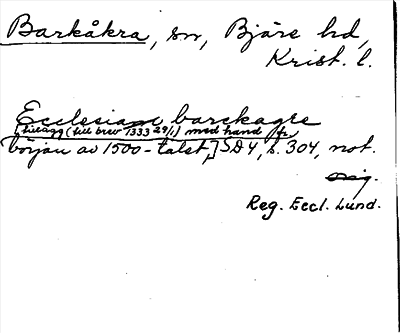 Barkåkra, sn, Bjäre hd,
Krist. l.
Ecclesiam barckagre
[tillägg (till brev 1333 29/1) med hand fr.
början av 1500-talet,] SD 4, s. 304, not.
orig.
Reg. Eccl. Lund.